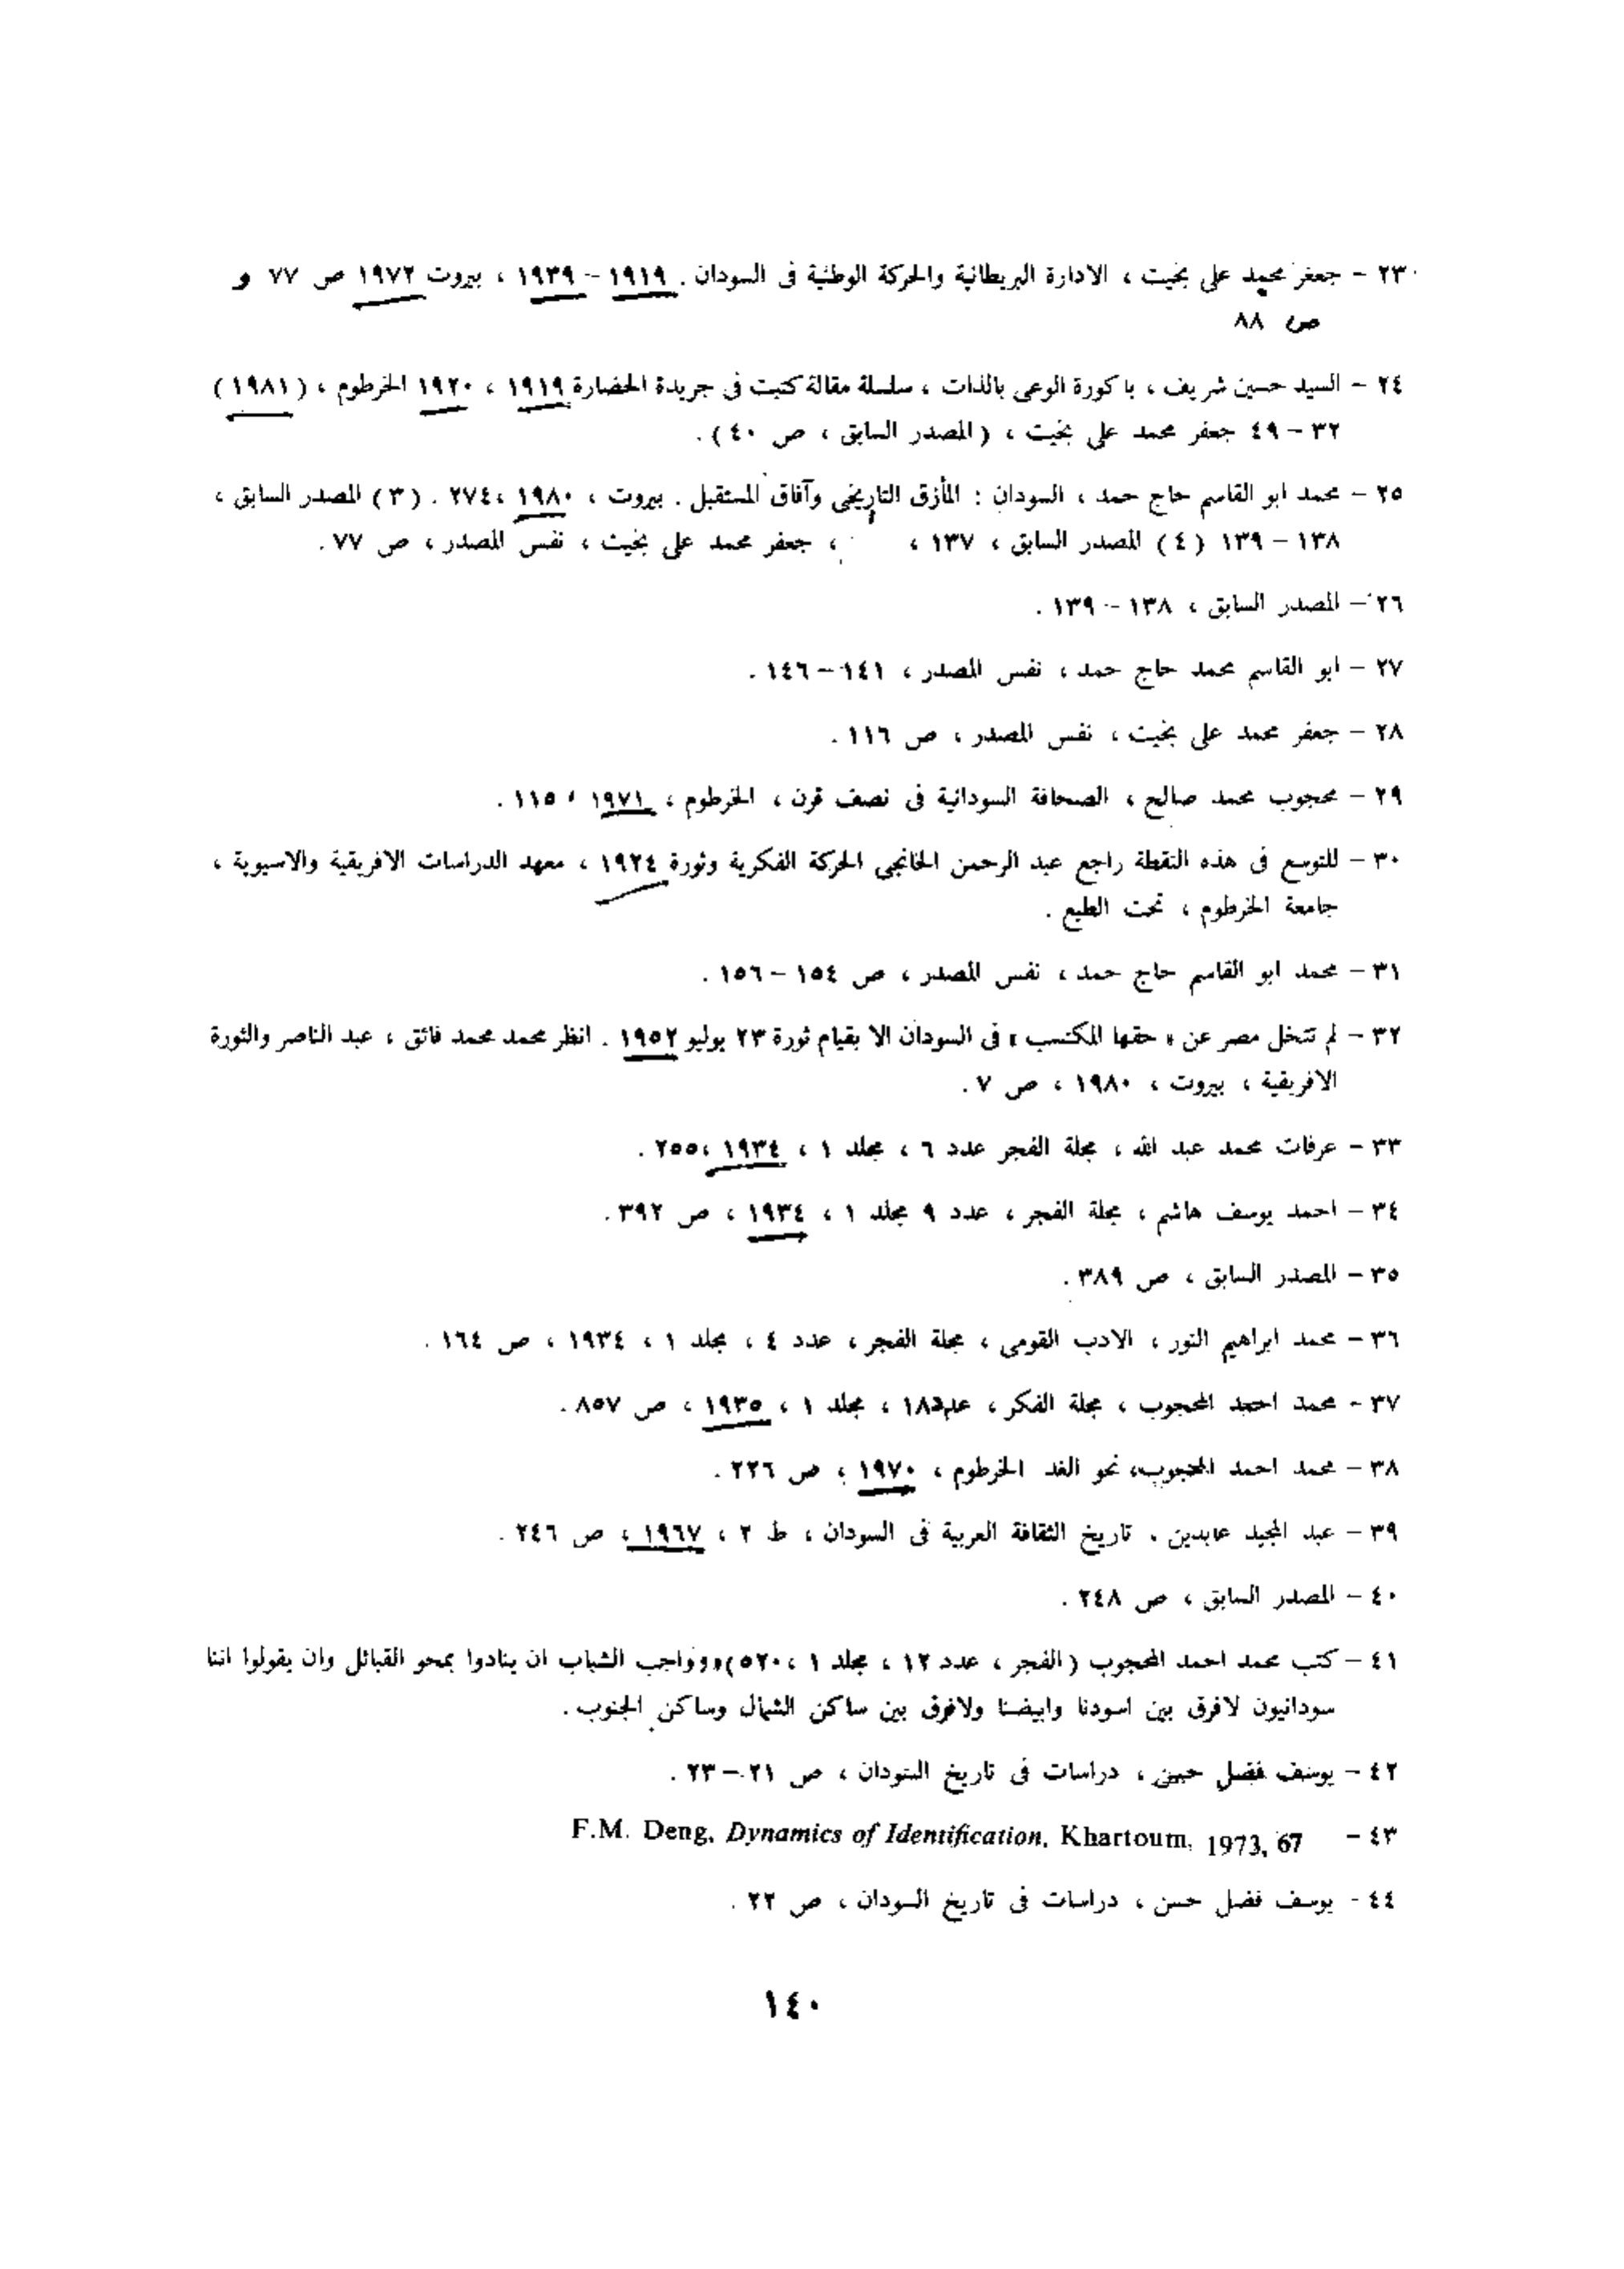 ٢٣ – جعفر محمد على بخيت ، الادارة البريطانية والحركة الوطنية فى السودان . ١٩١٩ – ١٩٣٩ ، بيروت ١٩٧٢ ص ٧٧ و
ص ٨٨
٢٤ – السيد حسين شريف ، باكورة الوعى بالذات ، سلسلة مقالة كتبت فى جريدة الحضارة ١٩١٩ ، ١٩٢٠ الخرطوم ، ( ١٩٨١ )
٣٢ – ٤٩ جعفر محمد على بخيت ، ( المصدر السابق ، ص ٤٠ ) .
٢٥ – محمد ابو القاسم حاج حمد ، السودان : المأزق التاريخى وآفاق المستقبل . بيروت ، ١٩٨٠ ، ٢٧٤ . ( ٣ ) المصدر السابق ،
١٣٨ – ١٣٩ ( ٤ ) المصدر السابق ، ١٣٧ ، ، جعفر محمد على بخيت ، نفس المصدر ، ص ٧٧ .
٢٦ – المصدر السابق ، ١٣٨ – ١٣٩ .
٢٧ – ابو القاسم محمد حاج حمد ، نفس المصدر ، ١٤١ – ١٤٦ .
٢٨ – جعفر محمد على بخيت ، نفس المصدر ، ص ١١٦ .
٢٩ – محجوب محمد صالح ، الصحافة السودانية فى نصف قرن ، الخرطوم ، ١٩٧١ ، ١١٥ .
٣٠ – للتوسع فى هذه النقطة راجع عبد الرحمن الخانجي الحركة الفكرية وثورة ١٩٢٤ ، معهد الدراسات الافريقية والاسيوية ،
جامعة الخرطوم ، تحت الطبع .
٣١ – محمد ابو القاسم حاج حمد ، نفس المصدر ، ص ١٥٤ – ١٥٦ .
٣٢ – لم تتخل مصر عن « حقها المكتسب » فى السودان الا بقيام ثورة ٢٣ يوليو ١٩٥٢ . انظر محمد محمد فائق ، عبد الناصر والثورة
الافريقية ، بيروت ، ١٩٨٠ ، ص ٧ .
٣٣ – عرفات محمد عبد الله ، مجلة الفجر عدد ٦ ، مجلد ١ ، ١٩٣٤ ، ٢٥٥ .
٣٤ – احمد يوسف هاشم ، مجلة الفجر ، عدد ٩ مجلد ١ ، ١٩٣٤ ، ص ٣٩٢ .
٣٥ – المصدر السابق ، ص ٣٨٩ .
٣٦ – محمد ابراهيم النور ، الادب القومى ، مجلة الفجر ، عدد ٤ ، مجلد ١ ، ١٩٣٤ ، ص ١٦٤ .
٣٧ – محمد احمد المحجوب ، مجلة الفكر ، عدد ١٨ ، مجلد ١ ، ١٩٣٥ ، ص ٨٥٧ .
٣٨ – محمد احمد المحجوب ، نحو الغد الخرطوم ، ١٩٧٠ ، ص ٢٢٦ .
٣٩ – عبد المجيد عابدين . تاريخ الثقافة العربية فى السودان ، ط ٢ ، ١٩٦٧ ، ص ٢٤٦ .
٤٠ – المصدر السابق ، ص ٢٤٨ .
٤١ – كتب محمد احمد المحجوب ( الفجر ، عدد ١٢ ، مجلد ١ ، ٥٢٠ ) ,, وواجب الشباب ان ينادوا بمحو القبائل وان يقولوا اننا
سودانيون لافرق بين اسودنا وابيضنا ولافرق بين ساكن الشمال وساكن الجنوب .
٤٢ – يوسف فضل حسن ، دراسات فى تاريخ السودان ، ص ٢١ – ٢٣ .
٤٣ – F.M. Deng, Dynamics of Identification, Khartoum, 1973, 67
٤٤ - يوسف فضل حسن ، دراسات فى تاريخ السودان ، ص ٢٢ .
١٤٠